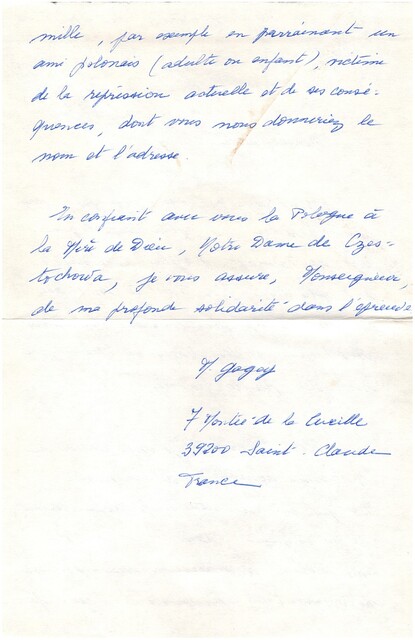 mille, par exemple en parrainant un
ami polonais (adulte ou enfant), victime
de la répression actuelle et de ses consé-
quences, dont vous nous donneriez le
nom et l'adresse.
En confiant avec vous la Pologne à
la Mère de Dieu, Notre Dame de Czes-
tochowa, je vous assure, Monseigneur,
de ma profonde solidarité dans l'épreuve
7 Montée de la Cueille
39200 Saint-Claude
France